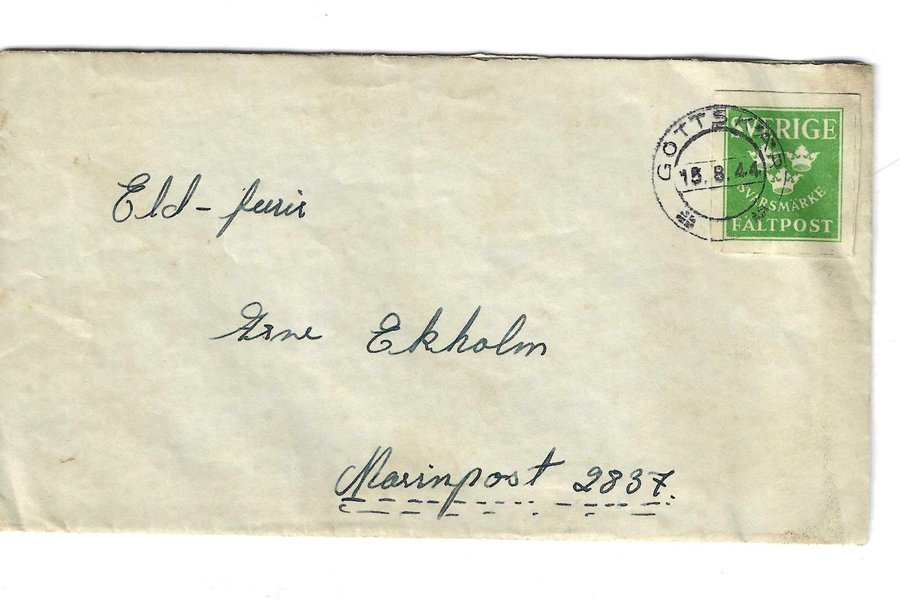 GOTTSKÄR
15.8.44
SVERIGE
SVARSMÄRKE
FÄLTPOST
Eld-furir
Arne Ekholm
Marinpost 2837.